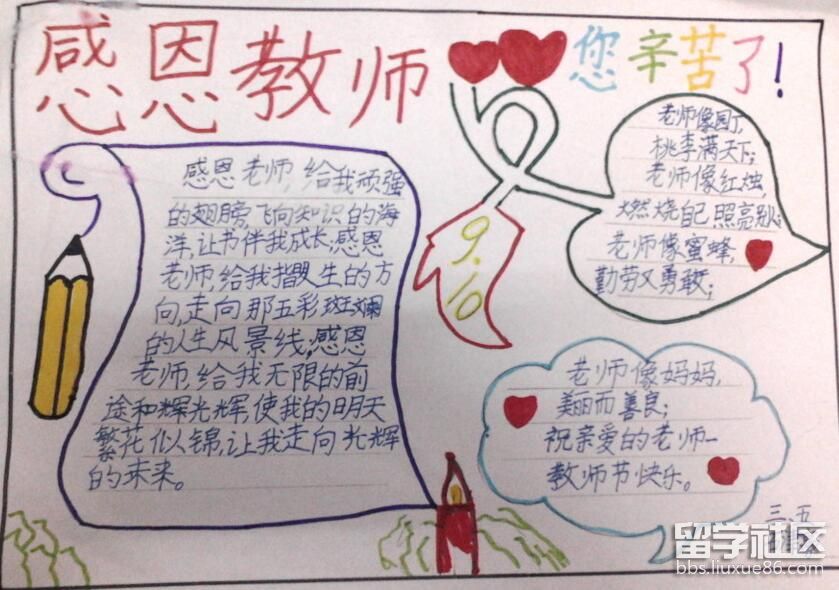 感恩教师
您辛苦了!
感恩老师,给我顽强
的翅膀,飞向知识的海
洋,让书伴我成长;感恩
老师,给我指明人生的方
向,走向那五彩斑斓
的人生风景线,感恩
老师,给我无限的前
途和辉光辉,使我的明天
繁花似锦,让我走向光辉
的未来。
9.10
老师像园丁,
桃李满天下;
老师像红烛,
燃烧自己照亮别人;
老师像蜜蜂,
勤劳又勇敢;
老师像妈妈,
美丽而善良;
祝亲爱的老师一
教师节快乐。
三、五
留学社区
bbs.liuxue86.com